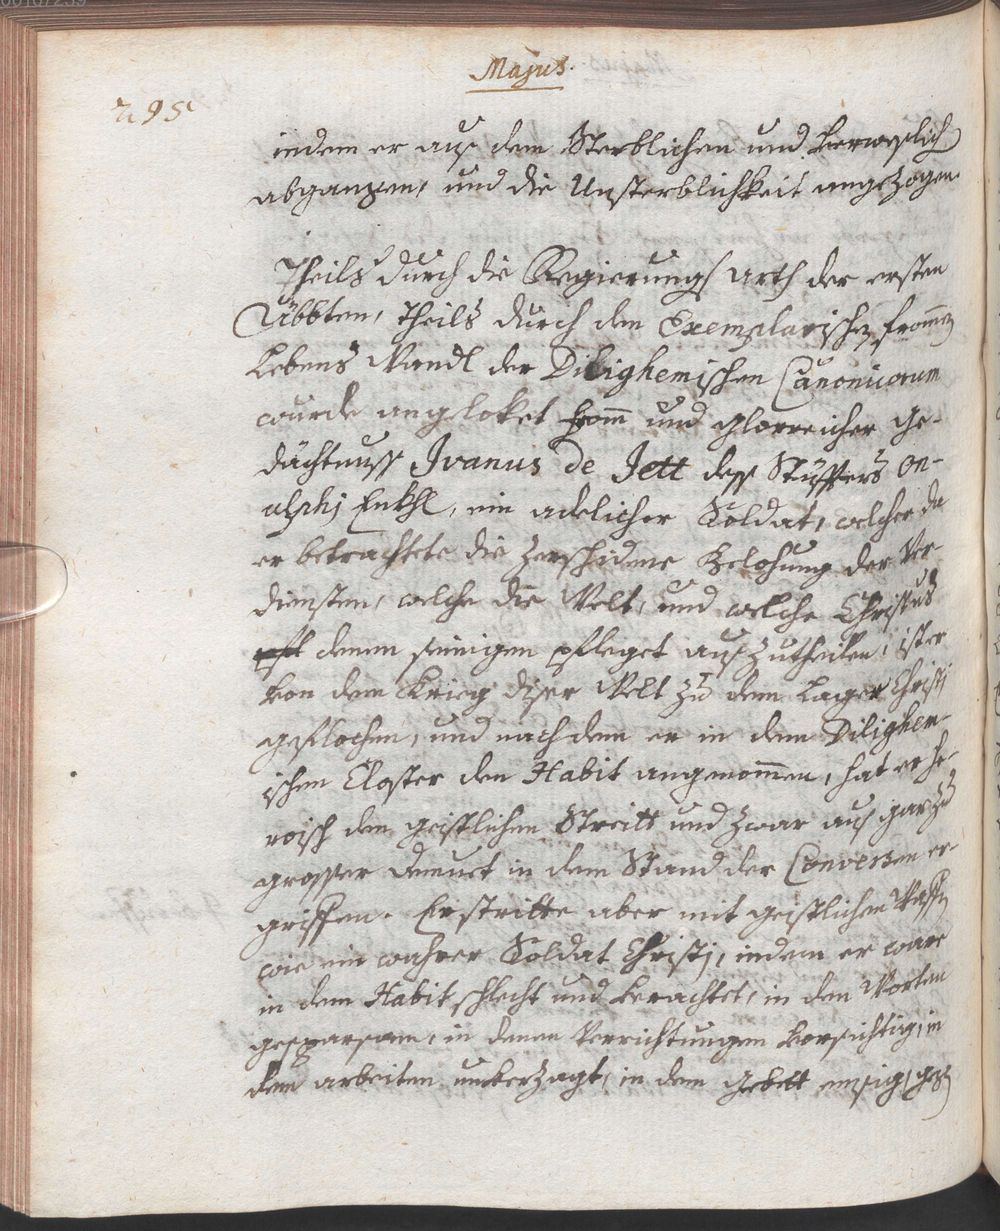 Majus.
295
indem er auß dem Sterblichen und Verweslich
abgangen, und die Unsterblichkeit angezogen.
Theils durch die Regierungs arth der ersten
Äbbten, theils durch den Exemplarischen from̄en
Lebens Wandl der Dilighemischen Canonicorum
wurde angeloket from̄ und glorreicher ge-
dächtnuss Ivanus de Jett dess Stüffters On-
ulphj Enkhl, ein adelicher Soldat, welcher da
er betrachtete die zerschidene Belohung der Ver-
diensten, welche die Welt, und welche Christus
denen seinigen pfleget auszutheilen, ist er
von dem Krieg diser Welt zu dem Lager Christj
geflochen, und nach dem er in dem Dilighem-
ischen Closter den Habit angenom̄en, hat er he-
roisch den geistlichen Streitt und zwar aus gar zu
grosser demuet in dem Stand der Conversen er-
griffen. Er stritte aber mit geistlichen Waffen
wie ein wahrer Soldat Christj, indem er ware
in dem Habit schlecht und verachtet, in den Worten
gesparsam, in denen Verrichtungen vorsichtig, in
dem arbeiten unverzagt, in dem gebett emsig,